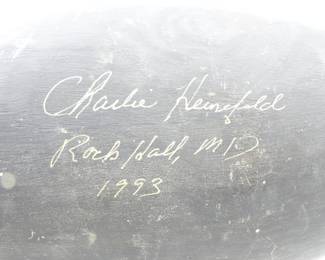 Charlie Heinefield
Rock Hall, MD
1993